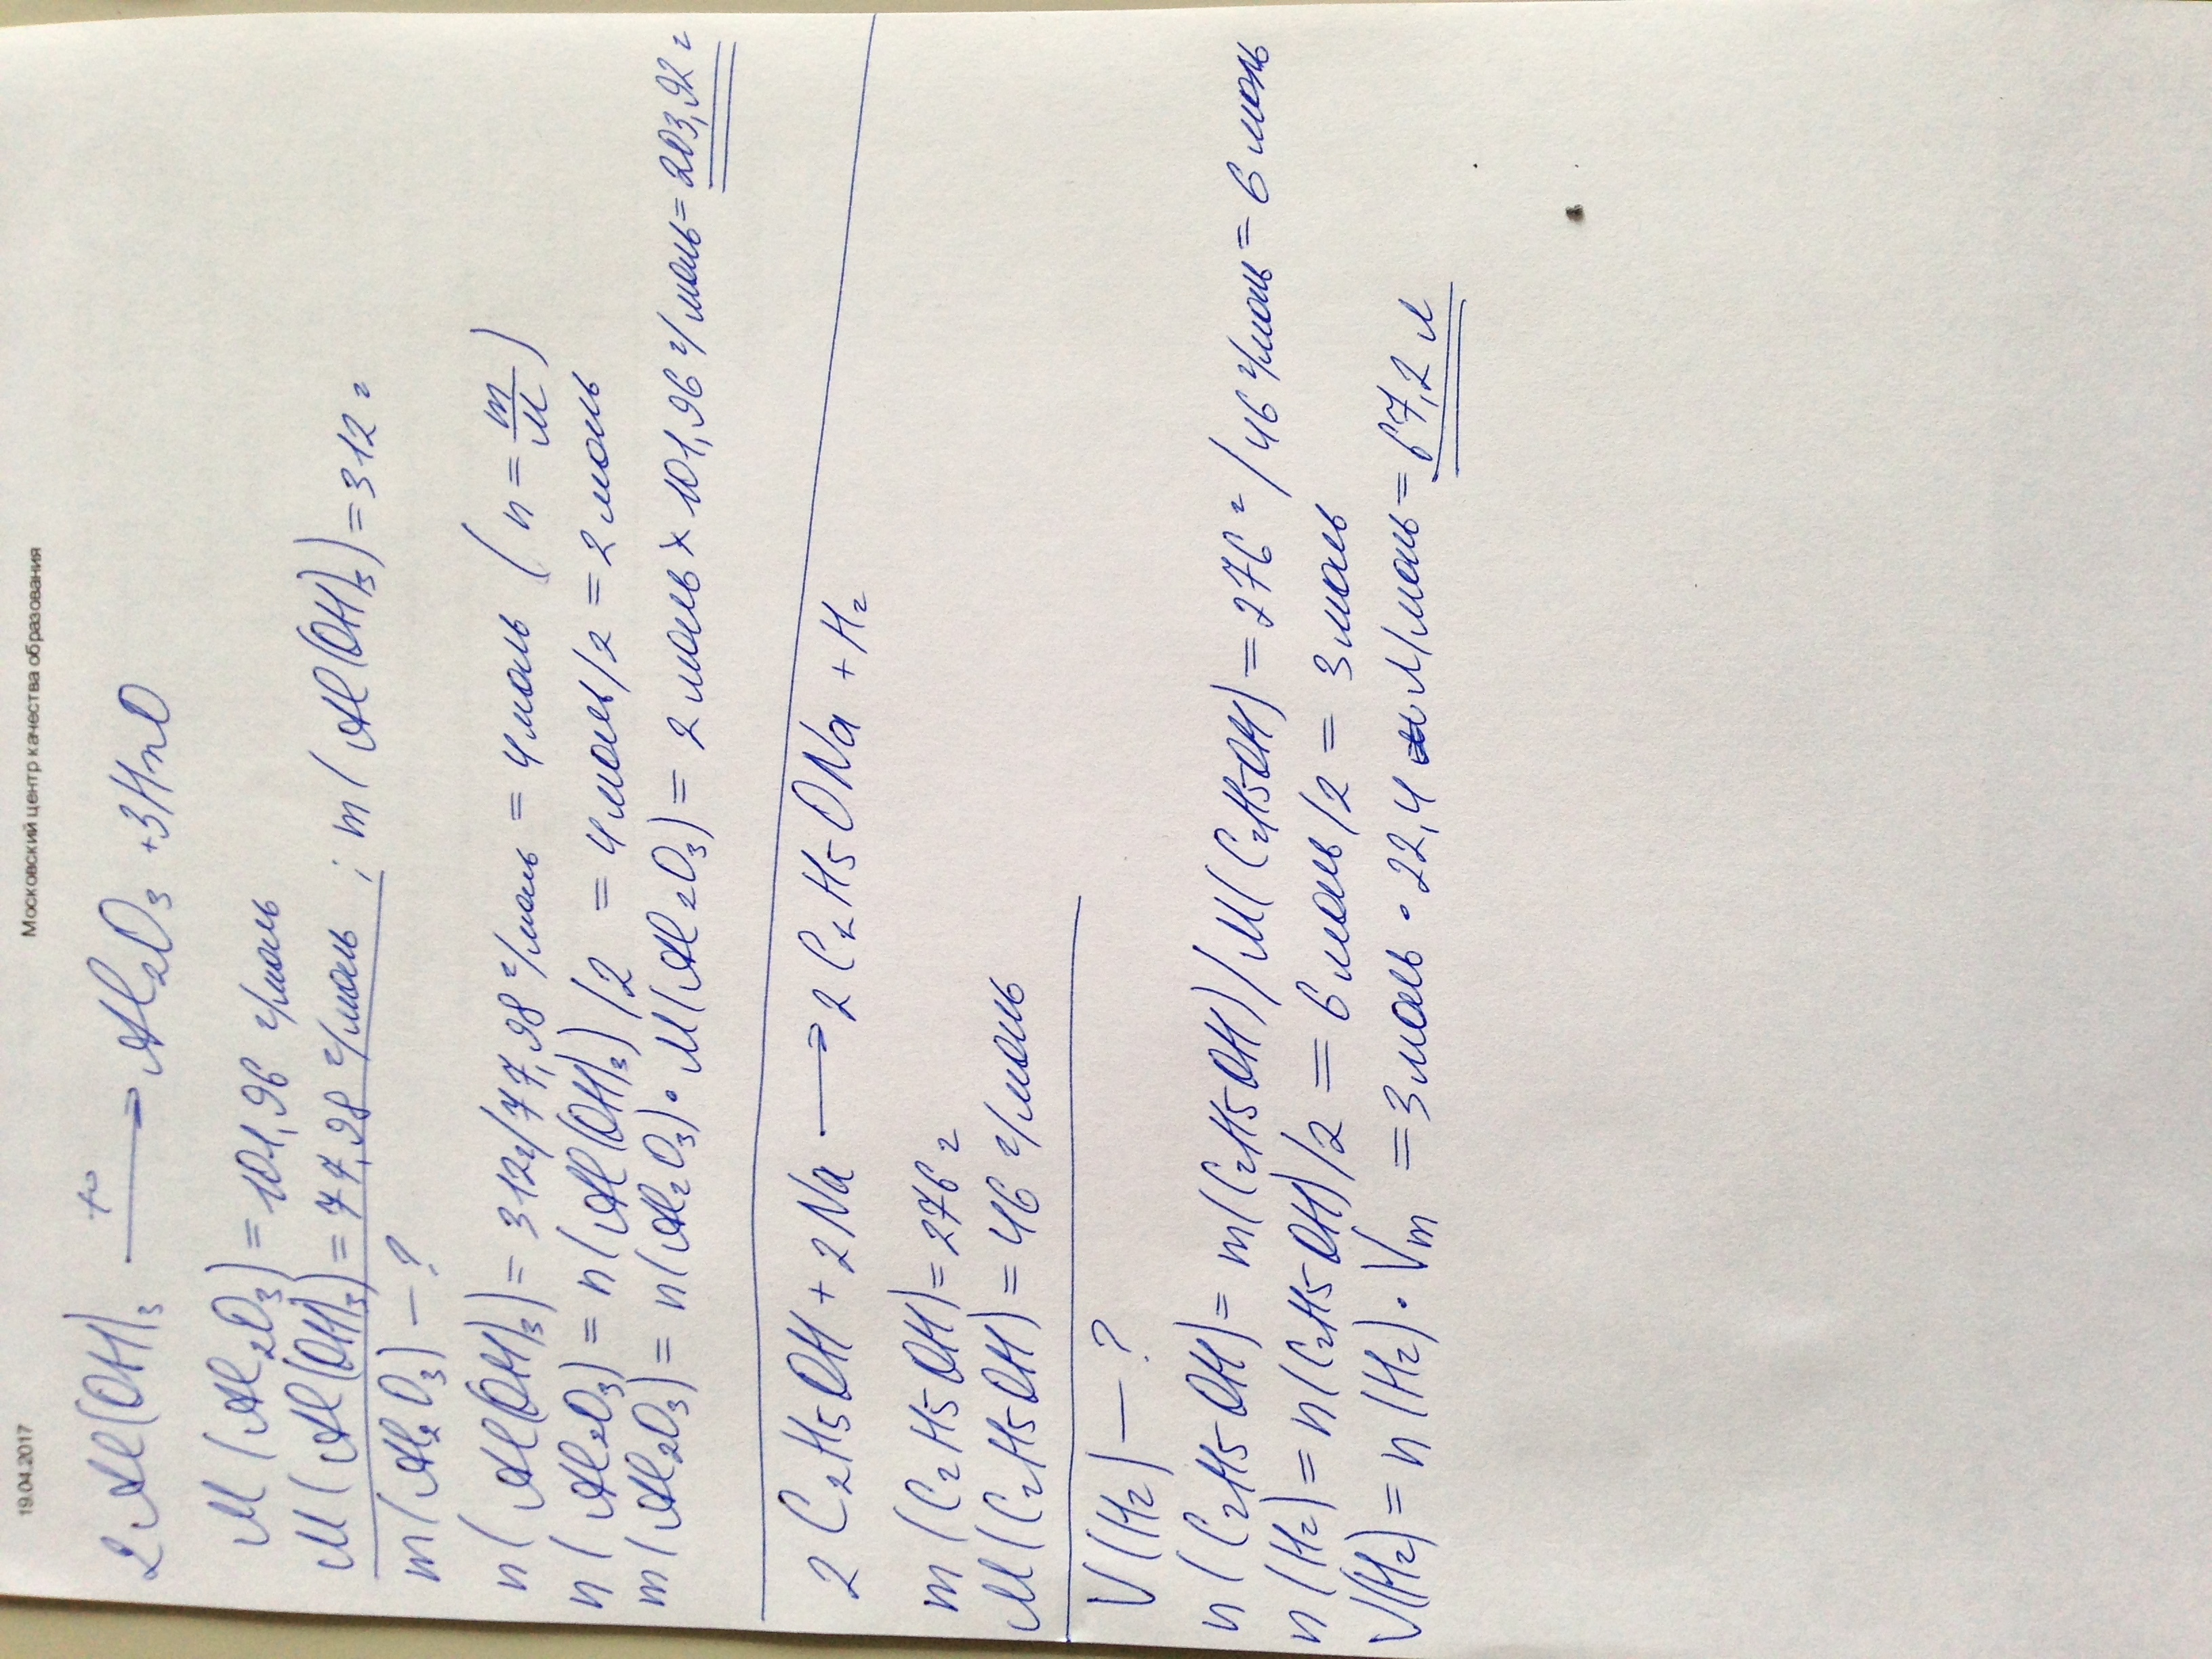 19.04.2017 Московский центр качества образования
2Al(OH)₃ —t°→ Al₂O₃ + 3H₂O
M(Al₂O₃) = 101,96 г/моль
M(Al(OH)₃) = 77,98 г/моль ; m(Al(OH)₃) = 312 г
m(Al₂O₃) — ?
n(Al(OH)₃) = 312г/77,98 г/моль = 4 моль (n = m/M)
n(Al₂O₃) = n(Al(OH)₃)/2 = 4 моль/2 = 2 моль
m(Al₂O₃) = n(Al₂O₃)·M(Al₂O₃) = 2 моль × 101,96 г/моль = 203,92 г
2C₂H₅OH + 2Na → 2C₂H₅ONa + H₂
m(C₂H₅OH) = 276 г
M(C₂H₅OH) = 46 г/моль
V(H₂) — ?
n(C₂H₅OH) = m(C₂H₅OH)/M(C₂H₅OH) = 276 г/46 г/моль = 6 моль
n(H₂) = n(C₂H₅OH)/2 = 6 моль/2 = 3 моль
V(H₂) = n(H₂)·Vm = 3 моль · 22,4 л/моль = 67,2 л